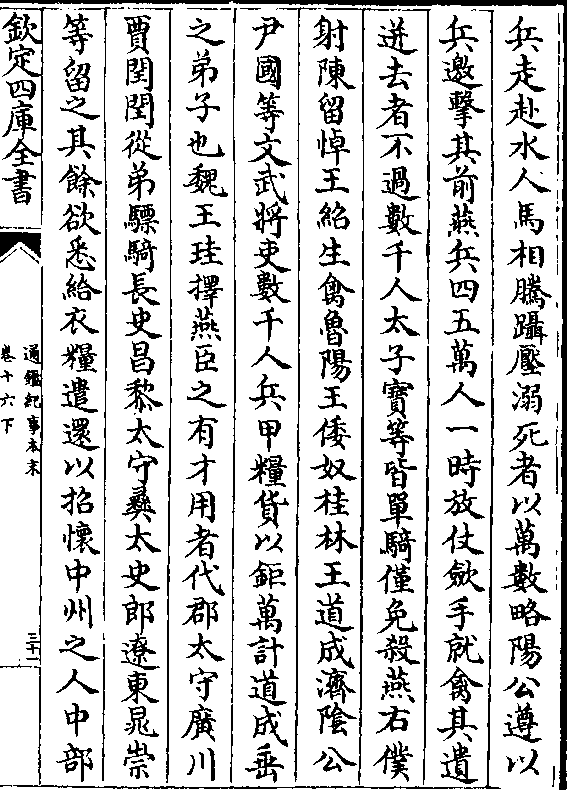 兵走赴水人馬相騰躡壓溺死者以萬數略陽公遵以
兵邀擊其前燕兵四五萬人一時放仗斂手就禽其遺
迸去者不過數千人太子寶等皆單騎僅免殺燕右僕
射陳留悼王紹生禽魯陽王倭奴桂林王道成濟陰公
尹國等文武將吏數千人兵甲糧貨以鉅萬計道成垂
之弟子也魏王珪擇燕臣之有才用者代郡太守廣川
賈閏閏從弟驃騎長史昌黎太守彝太史郎遼東晁崇
等留之其餘欲悉給衣糧遣還以招懷中州之人中部
欽定四庫全書
通鑑紀事本末
卷十六下
三十一